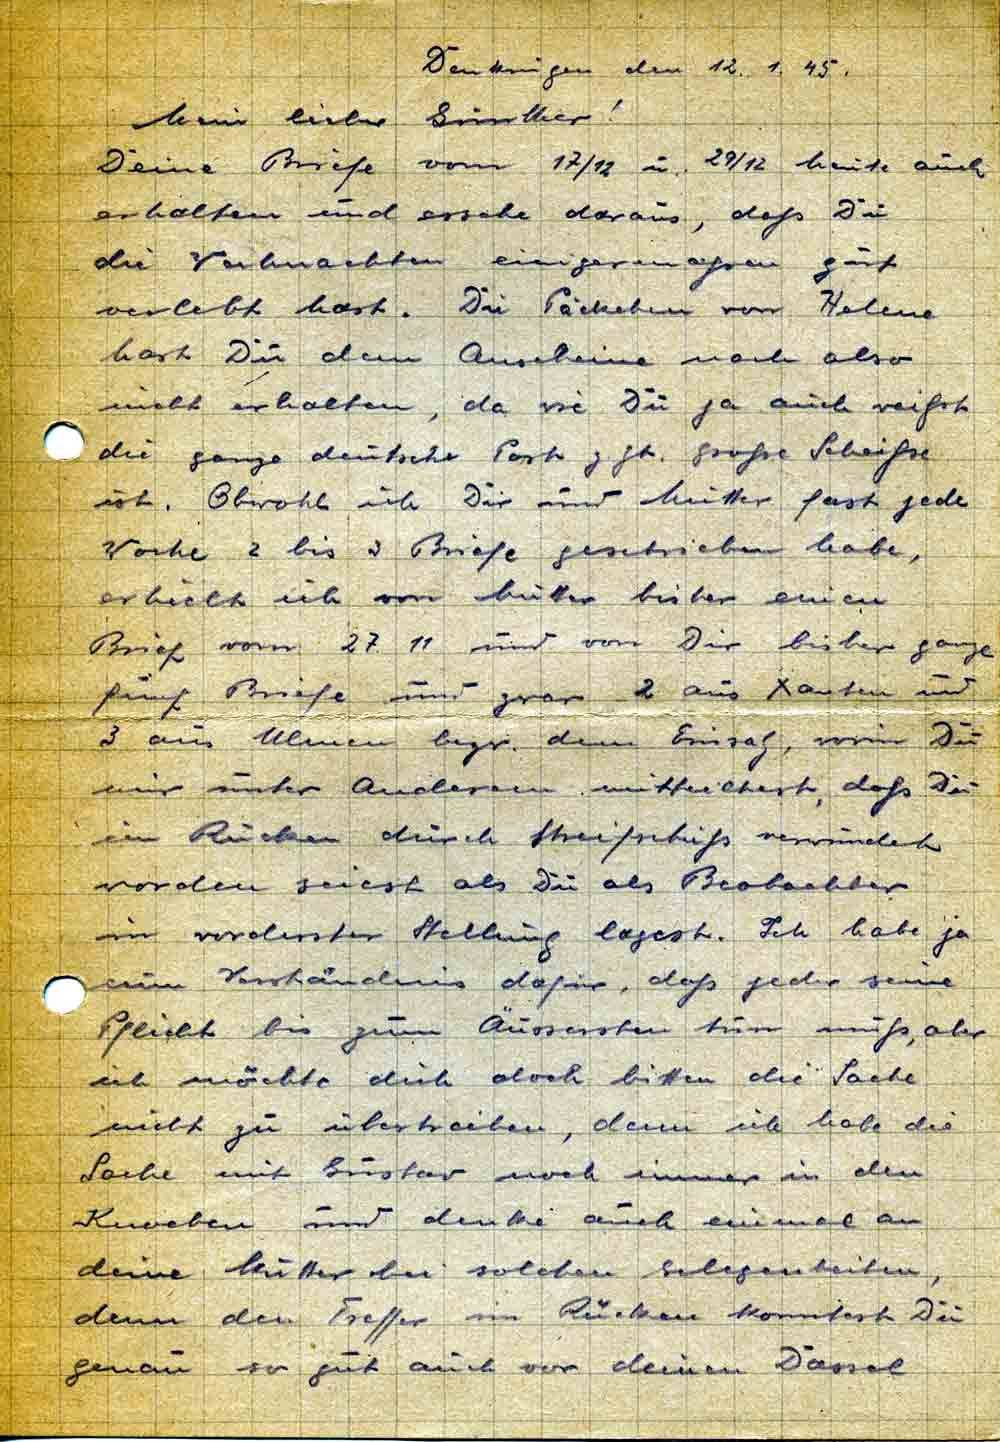 Denklingen den 12. 1. 45.
Mein lieber Günther!
Deine Briefe vom 17/12 u. 29/12 heute auch
erhalten und ersehe daraus, daß Du
die Weihnachten einigermaßen gut
verlebt hast. Die Päckchen von Helene
hast Du dem Anscheine nach also
nicht erhalten, da wie Du ja auch weißt
die ganze deutsche Post z. Zt. große Scheiße
ist. Obwohl ich Dir und Mutter fast jede
Woche 2 bis 3 Briefe geschrieben habe,
erhielt ich von Mutter bisher einen
Brief vom 27. 11 und von Dir bisher ganze
fünf Briefe und zwar 2 aus Xanten und
3 aus Ulmen bezw. dem Einsatz, worin Du
mir unter Anderem mitteiltest, daß Du
im Rücken durch Streifschuß verwundet
worden seiest als Du als Beobachter
in vorderster Stellung lagest. Ich habe ja
Verständnis dafür, daß jeder seine
Pflicht bis zum Äussersten tun muß, aber
ich möchte dich doch bitten die Sache
nicht zu übertreiben, denn ich habe die
Sache mit Gustav noch immer in den
Knochen und denke auch einmal an
deine Mutter bei solchen Gelegenheiten,
denn den Treffer im Rücken konntest Du
genau so gut auch vor deinen Dassel